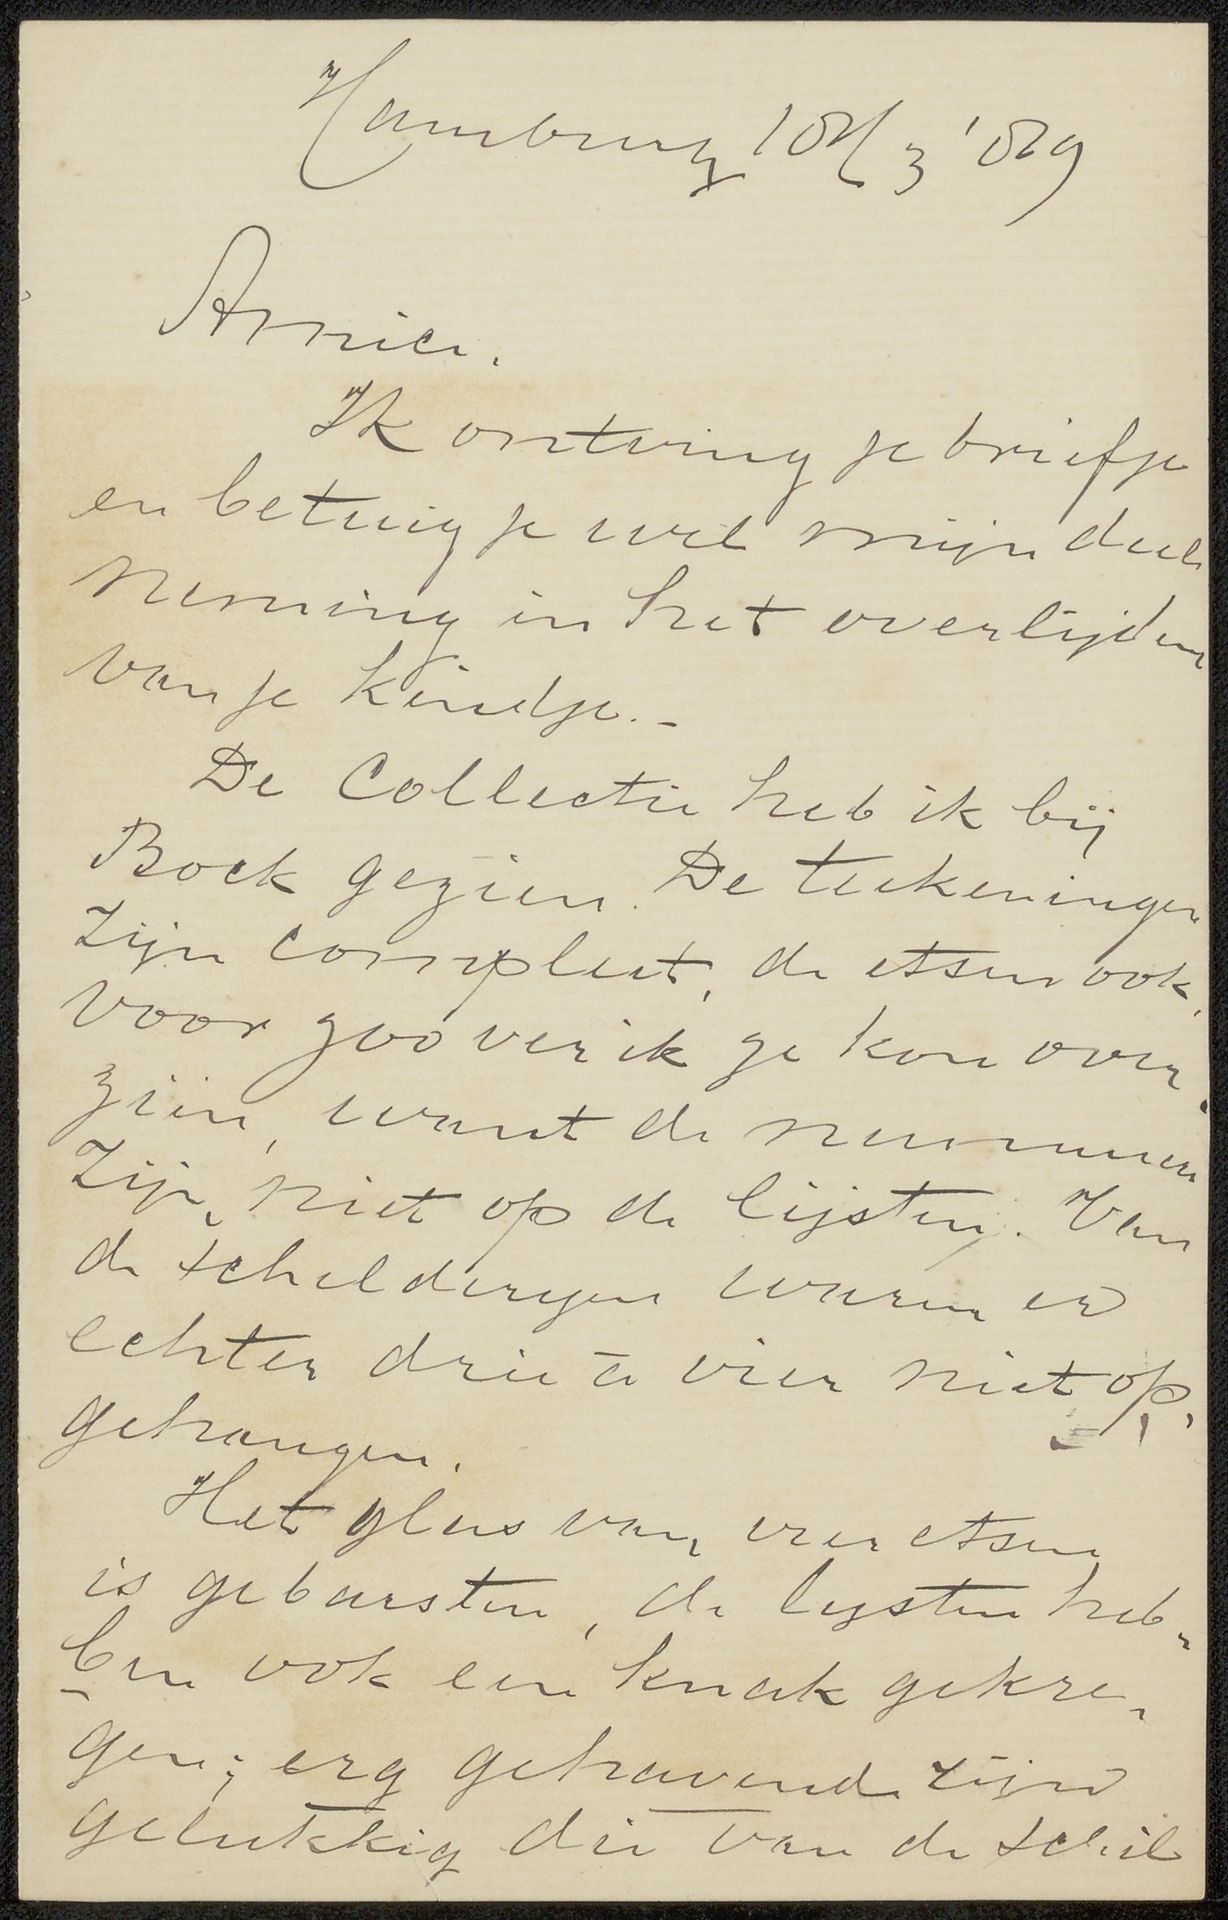 Hamburg 18/3 '89
Amice.
Ik ontving je briefje
en betuig je wel mijn deel
neming in het overlijden
van je kindje. -
De Collectie heb ik bij
Bock gezien. De teekeningen
zijn compleet, de etsen ook,
voor zoover ik ze kon over
zien, want de nummers
zijn niet op de lijsten. Van
de schilderyen waren er
echter drie à vier niet op,
gehangen.
Het glas van vier etsen
is gebarsten, de lysten heb-
ben ook een knak gekre-
gen; erg gehavend zijn
gelukkig die van de schil